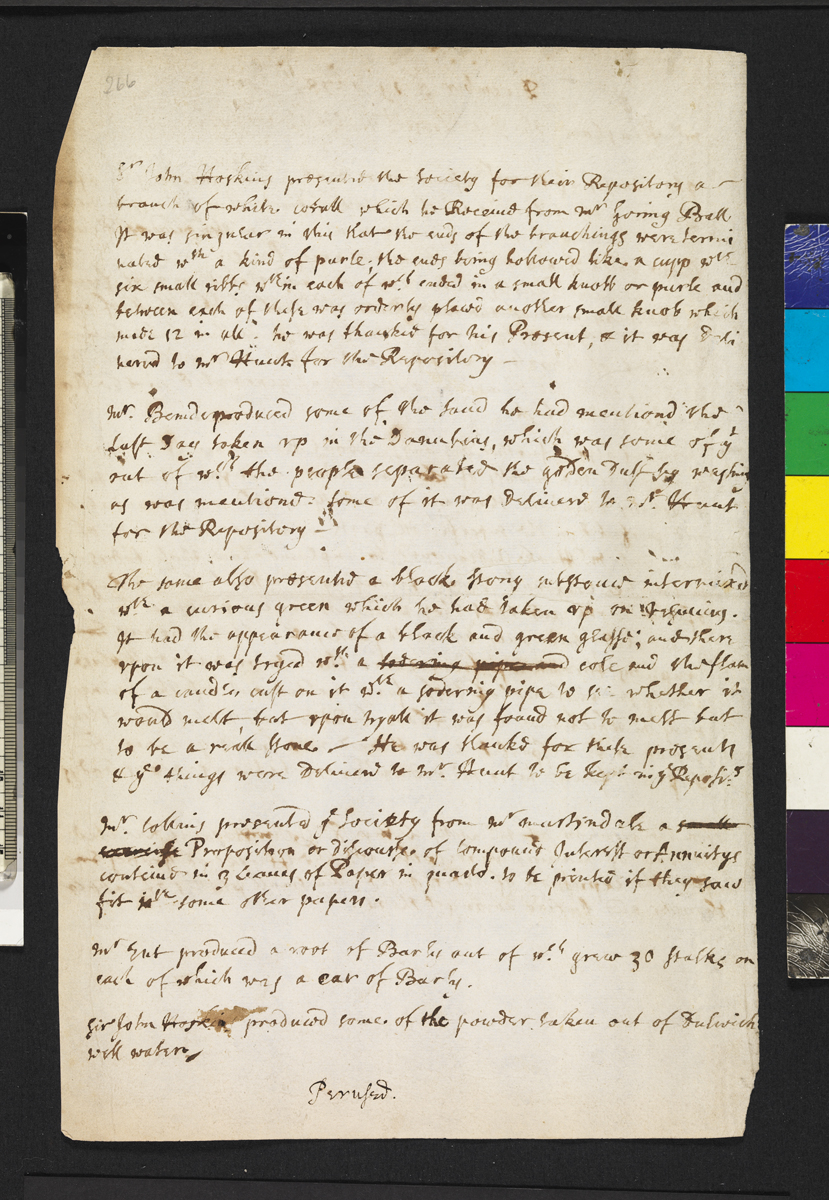 266
Sr John Hoskins presented the Society for their Repository a
branch of white corall which he Received from mr Goring Ball
It was singular in this that the ends of the branchings were termi
nated wth a kind of purle, the ends being hollowed like a cupp wth
six small ribbs wthin each of wch ended in a small knobb or purle and
between each of these was orderly placed another small knob which
made 12 in all. he was thanked for his Present, & it was Deli
uered to mr Hunt for the Repository
mr. produced some of the sand he had mentiond the
last Day taken vp in the Danubius, which was some of yt
out of wch the people separated the golden Dust by washing
as was mentiond. some of it was Deliuerd to mr. Hunt
for the Repository
The same also presented a black stony substance intermixed
wth a curious green which he had taken vp on
It had the appearance of a black and green glasse, and there
vpon it was tryed wth a sodering pipe and cole and the flam
of a candle cast on it wth a sodering pipe to se whether it
would melt, but vpon tryall it was found not to melt but
to be a reall stone. He was thanked for these presents
& ye things were Deliuerd to mr. Hunt to be kept in ye
mr. Collins presented ye Society from mr martindale a small
Proposition or discourse of Compound Interest or Annuitys
conteined in 3 Leaues of Paper in quarto. to be printed if they saw
fit wth some other papers.
mr Ent produced a root of Barly out of wch grew 30 stalks on
each of which was a ear of Barly.
Sir John Hoskin produced some of the powder taken out of Dulwich
well water
Perused.